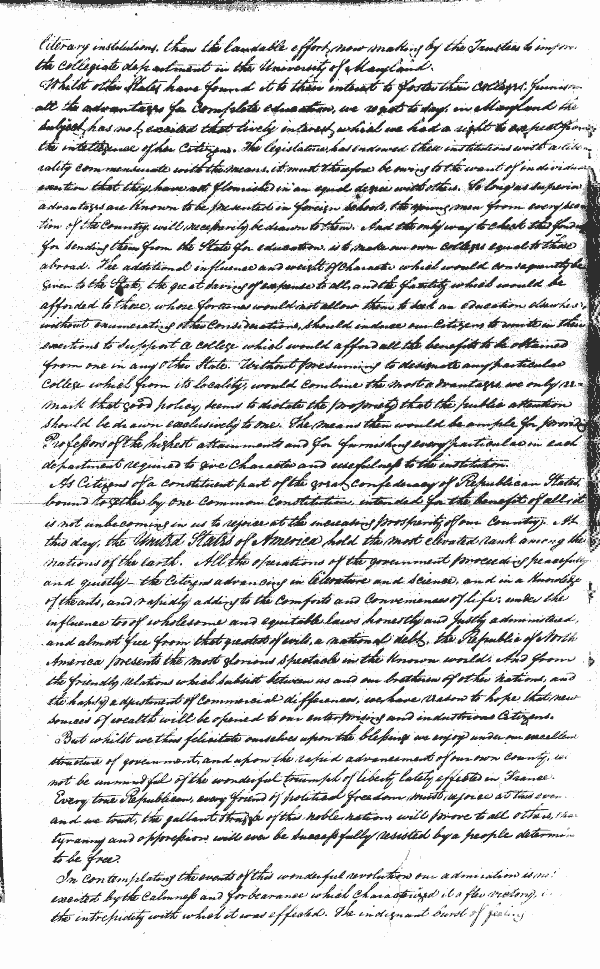 literary institutions, than the laudable effort, now making by the Trustees to improve
the collegiate department in the University of Maryland.
Whilst other States have found it to their interest to foster their Colleges, furnish
all the advantages for complete education, we regret to day, in Maryland the
subject has not excited that lively interest which we had a right to expect from
the intelligence of her Citizens. The legislature has endowed these institutions with a libe-
rality commensurate with the means, it must therefore be owing to the want of individual
exertion that they have not flourished in an equal degree with others. So long as superior
advantages are known to be presented in foreign schools, the young men from every por-
tion of the Country, will necessarily be drawn to them. And the only way to check this
for sending them from the State for education, is to make our own colleges equal to those
abroad. The additional influence and weight of Character which would consequently be
given to the State, the great saving of expense to all, and the facility which would be
afforded to those, whose fortunes would not allow them to seek an education elsewhere,
without enumerating other Considerations, should induce our Citizens to unite in their
exertions to support a College which would afford all the benefits to be obtained
from one in any other State. Without presuming to designate any particular
College which from its locality, would combine the most advantages we only re-
mark that good policy, seems to dictate the propriety that the public attention
should be drawn exclusively to one. The means then would be ample for providing
Professors of the highest attainments and for furnishing every particular in each
department required to give Character and usefulness to the institution.
As Citizens of a constituent part of the great confederacy of Republican States,
bound together by one Common Constitution, intended for the benefit of all, it
is not unbecoming in us to rejoice at the increasing prosperity of our Country. At
this day, the United States of America hold the most elevated rank among the
nations of the Earth. All the operations of the government proceeding peacefully
and quietly - the Citizens advancing in literature and science, and in a knowledge
of the arts, and rapidly adding to the Comforts and Conveniences of life; under the
influence too of wholesome and equitable laws honestly and justly administered,
and almost free from that greatest of evils, a national debt, the Republic of North
America presents the most glorious spectacle in the known world. And from
the friendly relations which subsist between us and our brethren of other nations, and
the happy adjustment of Commercial differences, we have reason to hope that new
sources of wealth will be opened to our enterprising and industrious Citizens.
But whilst we thus felicitate ourselves upon the blessings we enjoy under our excellent
structure of government, and upon the rapid advancement of our own county, we
not be unmindful of the wonderful triumph of liberty lately effected in France.
Every true Republican, every friend of political freedom must rejoice at this event
and we trust, the gallant struggle of this noble nation will prove to all others, that
tyranny and oppression will ever be successfully resisted by a people determined
to be free.
In contemplating the events of this wonderful revolution our admiration is no
excited by the Calmness and forbearance which Characterized it after victory,
the intrepidity with which it was effected. The indignant burst of feeling